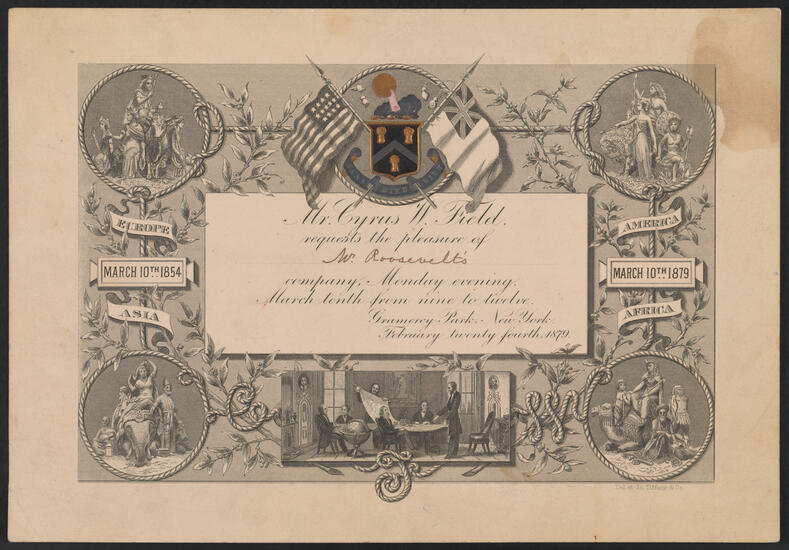 Mr. Cyrus W. Field,
requests the pleasure of
Mr. Roosevelt's
company, Monday evening,
March tenth from nine to twelve.
Gramercy Park, New York.
February twenty fourth, 1879.
EUROPE
MARCH 10TH 1854
ASIA
AMERICA
MARCH 10TH 1879
AFRICA
Del. et Sc. Tiffany & Co.